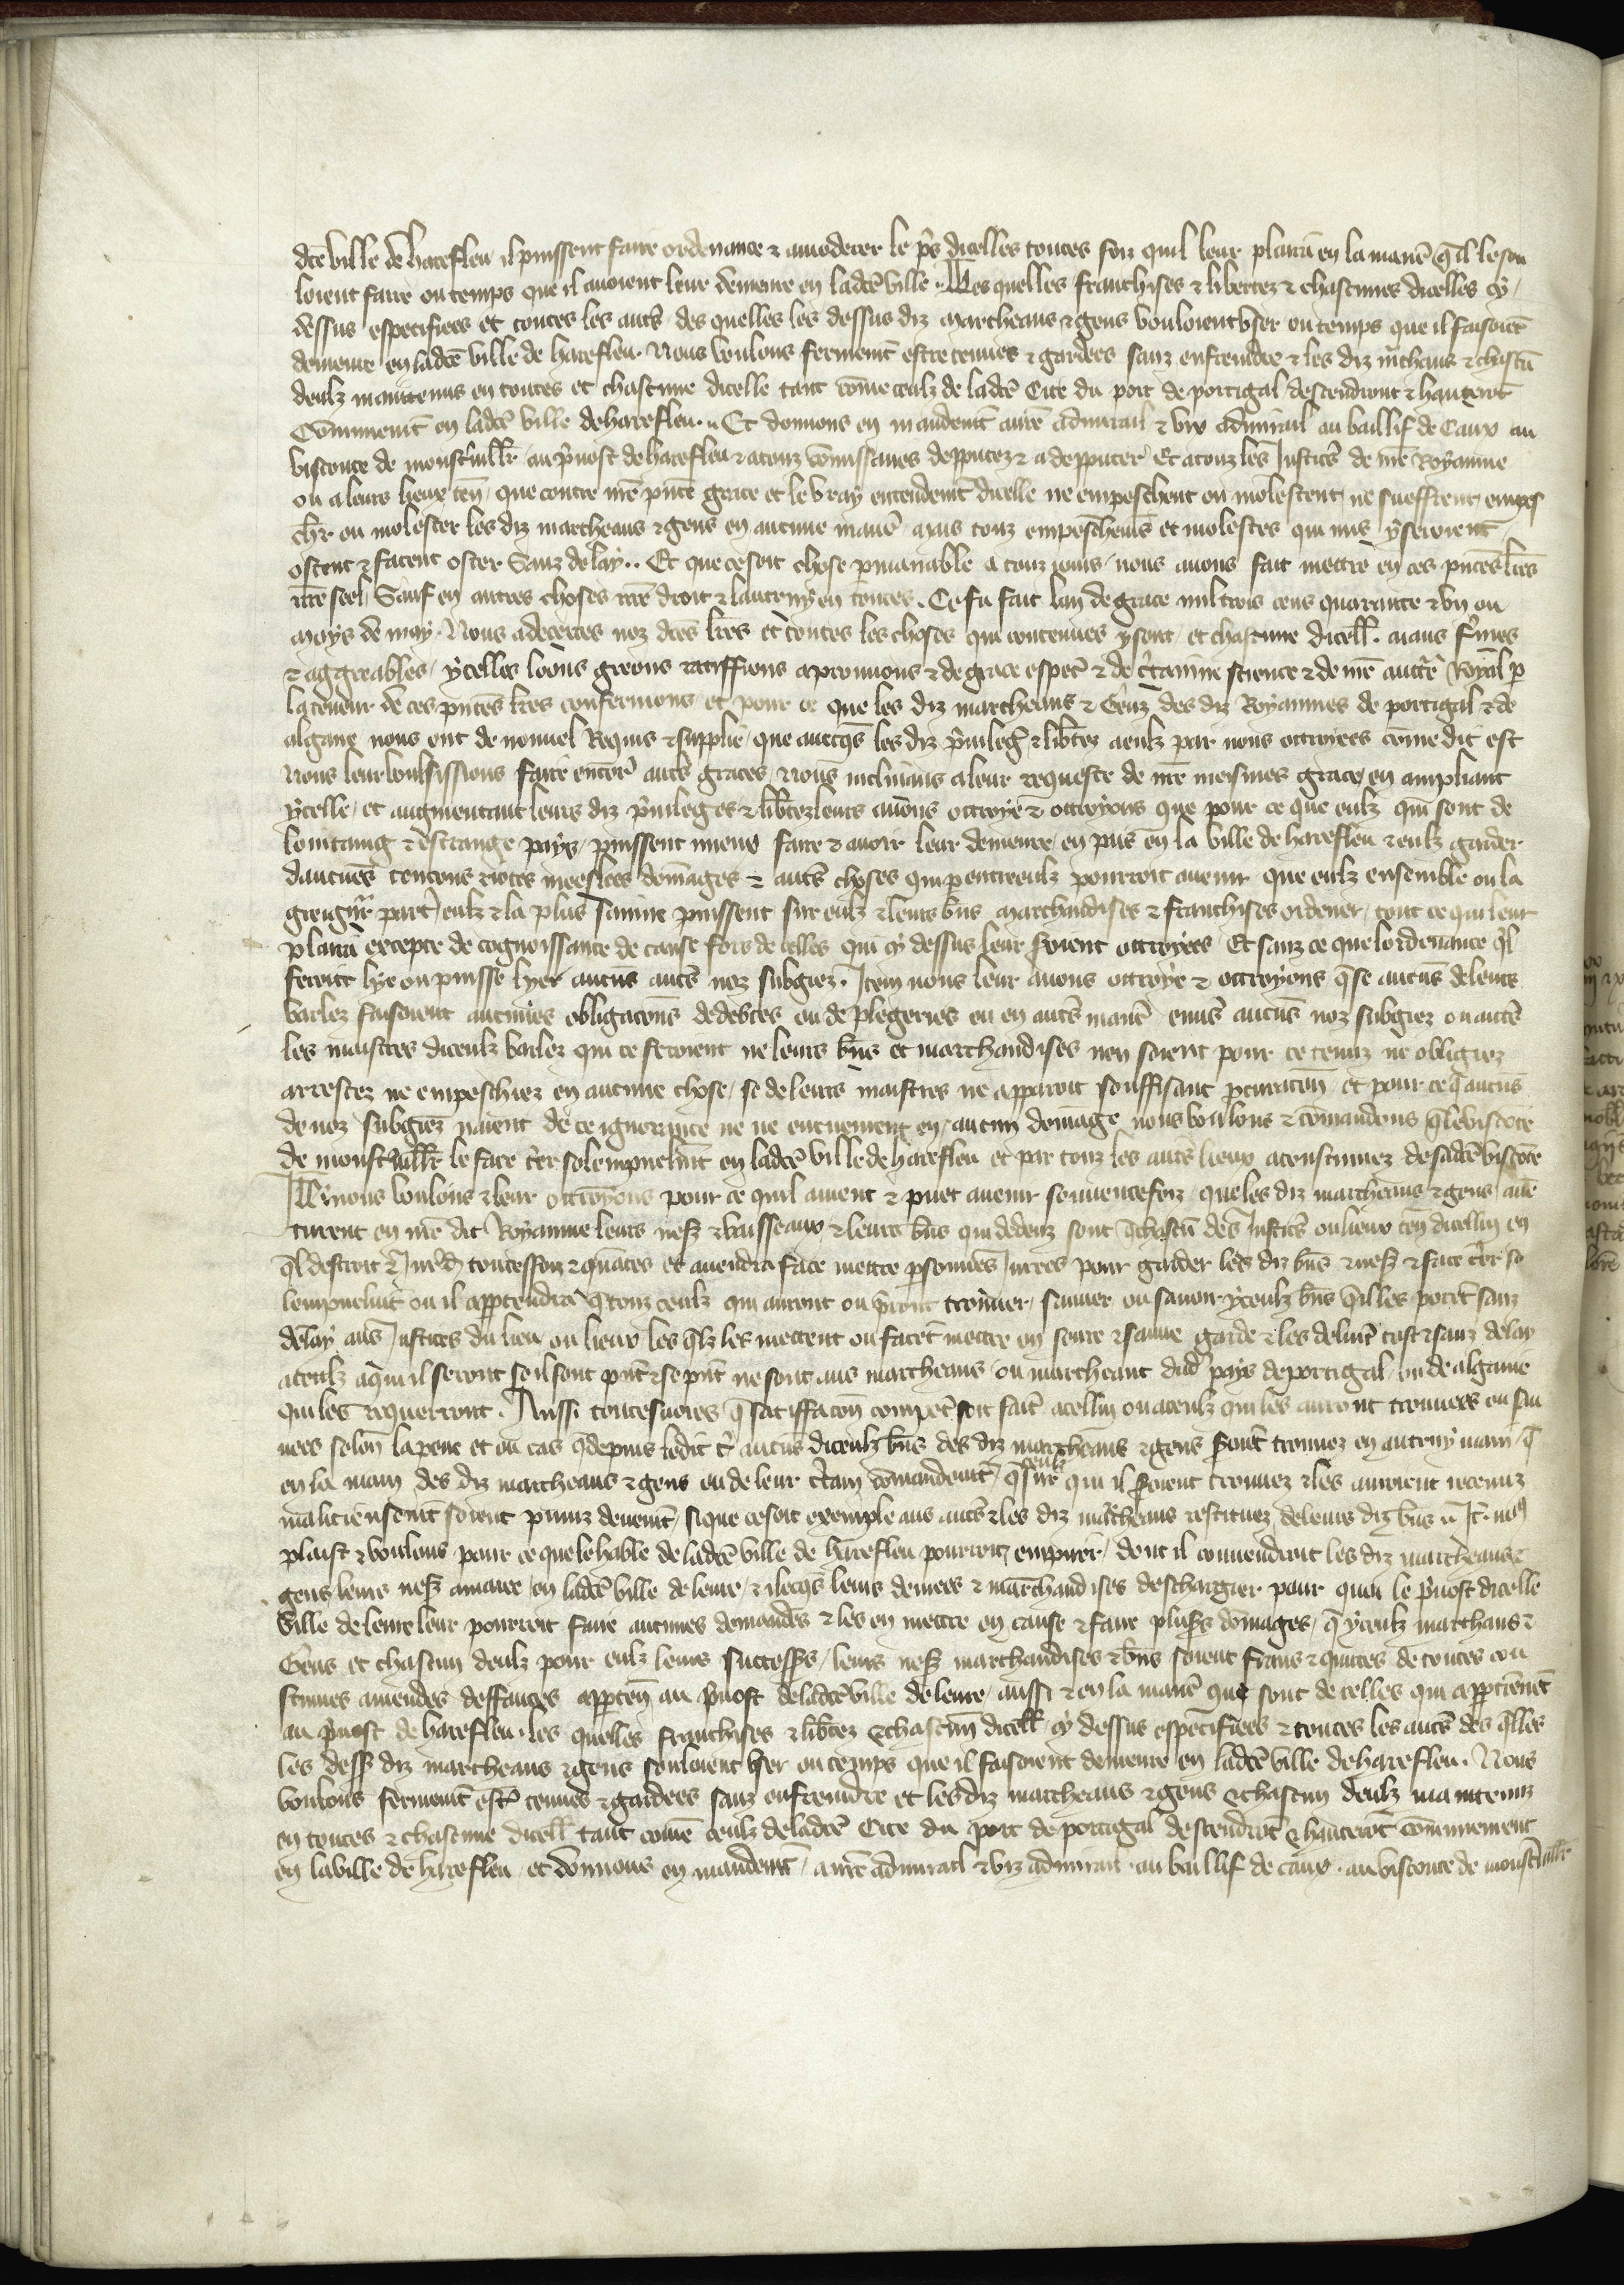 dcē ville de harefleu il puissent faire ordenance & amoderer le pris dicelles toutes foiz quil leur plaira en la manē qil le sou
loient faire ou temps que il avoient leur demeure en ladcē ville .. Les quelles franchises & libertez & chascunes dicelles cy
dessus especifiees et toutes les autēs des quelles les dessus diz marcheans & gens vouloient user ou temps que il faisoiēt
demeure en ladcē ville de harefleu. Nous voulons fermemēt estre tenues & gardees sanz enfreindre & les diz mēheans & chascū
deulz maintenus en toutes et chascune dicelle tant cōme ceulz de ladcē Cite du port de portigal descendront & hanterōt
Cōmunemēt en ladcē ville de harefleu .. Et donnons en mandemēt a nrē admirail & viz admirail au baillif de Caux au
visconte de monstivillēr au p̄vost de harefleu & a touz cōmissaires depputez & a depputer Et a touz les Justicēs de nrē Royaume
ou a leurs lieux ten̄. que contre nrē pn̄te grace et le vray entendemēt dicelle ne empeschent ou molestent ne sueffrent empes
chēr ou molester les diz marcheans & gens en aucune manē. mais touz empeschemēs et molestes qui mis y seroient
ostent & facent oster Sanz delay .. Et que ce soit chose p̄manable a touz jours. nous avons fait mettre en ces pn̄tes lrēs
nrē seel Sauf en autres choses nrē droit & lautruy en toutes. Ce fu fait lan de grace mil trois cens quarante & un ou
moys de may. Nous adecertes noz dcēs lrēs et toutes les choses qui contenues y sont et chascune dicell. aians fermes
& aggreables. ycelles loons greons ratiffions aprouvons & de grace especl & de cētainne science & de nrē auctē Royal p̄
la teneur de ces pn̄tes lrēs confermons et pour ce que les diz marcheans & Genz des diz Royaumes de portigal & de
algarve nous ont de nouvel Requis & supplie que avecq̄s les diz p̄vileḡ & libtez a eulz par nous ottroyees cōme dit est
Nous leur voulsissions faire encorē autēs graces Nous inclinans a leur requeste de nrē meismes grace en ampliant
ycelle. et augmentant leurs diz p̄vileges & libtez leurs avons ottroye & ottroyons que pour ce que eulz qui sont de
lointaing & estrange pays. puissent mieux faire & avoir leur demeure en pais en la ville de harefleu & eulz garder
daucunes tencons riotes meeslees dōmages & autēs choses qui p̄ entre eulz pourroit avenir que eulz ensemble ou la
greigneur partie deulz & la plus sainne puissent sur eulz & leurs bn̄s marchandises & franchises ordener. tout ce qui leur
plaira excepte de cognoissance de cause fors de celles qui cy dessus leur seroient ottroyees Et sanz ce que lordenance q̄l
feront lye ou puisse lyer aucūs autēs noz subgiez. Item nous leur avons ottroye & ottroyons q̄ se aucūs de leurs
varlez faisoient aucunes obligacōns de debtes ou de plegeries ou en autēs manē envs aucūs noz subgiez ou autēs
les maistres diceulz varlez qui ce feroient ne leurs bn̄s et marchandises nen soient pour ce tenuz ne obligiez
arrestez ne empeschiez en aucune chose. se de leurs maistres ne apparoit souffisant p̄curacōn et pour ce q̄ aucūs
de noz subgiez naient de ce ignorance ne ne encueurent en aucun dōmage nous voulons & cōmandons q̄ le viscōte
de monstivillēr le face crier solempnelmt en ladcē ville de harefleu et par touz les autēs lieux acoustumez de sadcē viscōte
Item nous voulons & leur ottroyons pour ce quil avient & puet avenir souventefoiz. que les diz marcheans & gens avē
turent en nrē dit Royaume leurs nefz & vaisseaux & leurs bn̄s qui dedenz sont q̄ chascū des Justicēs ou lieux ten̄ dicellui en
toutes foiz & quantes ce avendra face mettre p̄sonnes Jurees pour garder les diz bn̄s & nefz & face crier so
lempnelmt ou il app̄tendra q̄ touz ceulz qui auront ou p̄ront trouver. sauver ou savoir yceulz bn̄s q̄ il les portēt sanz
delay aus Justices du lieu ou lieux les q̄lz les mettent ou facēt mettre en seure & sauve garde & les delivrēt tost & sanz delay
a ceulz a qui il seront se il sont pn̄s & se pn̄s ne sont aus marcheans ou marcheant dud pays de portigal. ou de algarve
qui les requerront. Aussi toutesvoies q̄ satiffacōn compēt soit faitē a cellui ou a ceulz qui les auront trouvees ou sau
vees selon la peine et ou cas q̄ depuis ledit cri aucūs diceulz bn̄s des diz marcheans & gens s̄ont trouvez en autruy main. q̄
en la main des diz marcheans & gens ou de leur cētain cōmandemēt. q̄ ceulz sur qui il s̄oient trouvez & les auroient receuz
malicieusemēt soient puniz deuemēt. si que ce soit exemple aus autēs & les diz marcheans restituez de leurs diz bn̄s .. It. nos
plaist & voulons pour ce que le hable de ladcē ville de harefleu pourroit empirer. dont il convendroit les diz marcheans &
gens leurs nefz amarrer en ladcē ville de leure. & ilecq̄s leurs denrees & marchandises deschargier pour quoi le p̄vost dicelle
ville de leure leur pourroit faire aucunes demandes & les en mettre en cause & faire plus̄rs dōmages. q̄ yceulz marchans &
Gens et chascun deulz pour eulz leurs success̄rs. leurs nefz marchandises & bn̄s soient frans & quittes de toutes cou
stumes amendes deffauges app̄ten̄ au p̄vost de ladcē ville de leure. aussi & en la manē que sont de celles qui app̄tienēt
au p̄vost de harefleu. les quelles franchises & libtez & chascun dicell cy dessus especifiees & toutes les autēs des q̄lles
les dess diz marcheans & gens souloient user ou temps que il faisoient demeure en ladcē ville de harefleu. Nous
voulons fermemēt estē tenues & gardees sanz enfreindre et les diz marcheans & gens & chascun deulz maintenuz
en toutes & chascune dicell tant cōme ceulz de ladcē Cite du port de portigal descendrōt & hanterōt cōmunement
en la ville de harefleu. et donnons en mandemēt. a nrē admirail & viz admirail. au baillif de caux. au visconte de monstivillēr